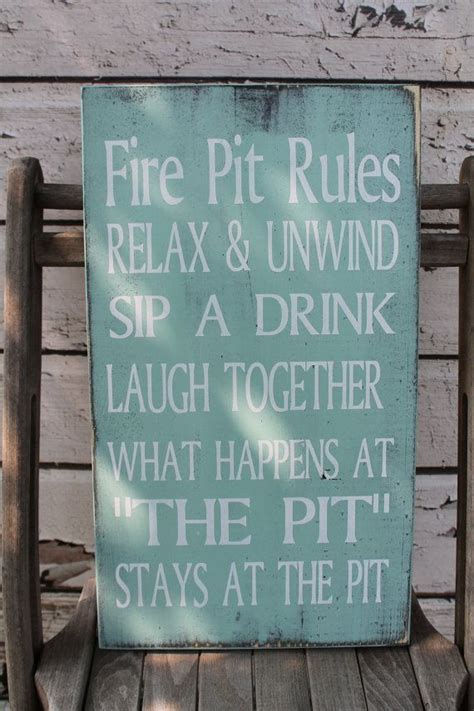 Fire Pit Rules
RELAX & UNWIND
SIP A DRINK
LAUGH TOGETHER
WHAT HAPPENS AT
"THE PIT"
STAYS AT THE PIT